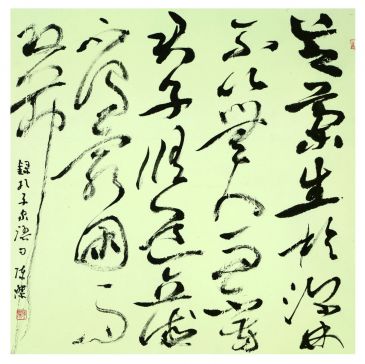 芝蘭生於深林
不以無人而不芳
君子修道立德
不謂窮困而
改節
錄孔子家語句 陳傑